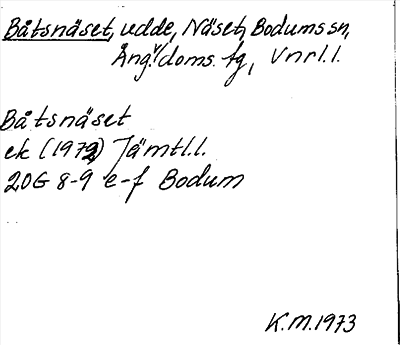 Båtsnäset, udde, Näset, Bodums sn,
Ång.doms. tg, Vnrl.l.
Båtsnäset
ek (1972) Jämtl.l.
20G 8-9 e-f Bodum
K.M.1973